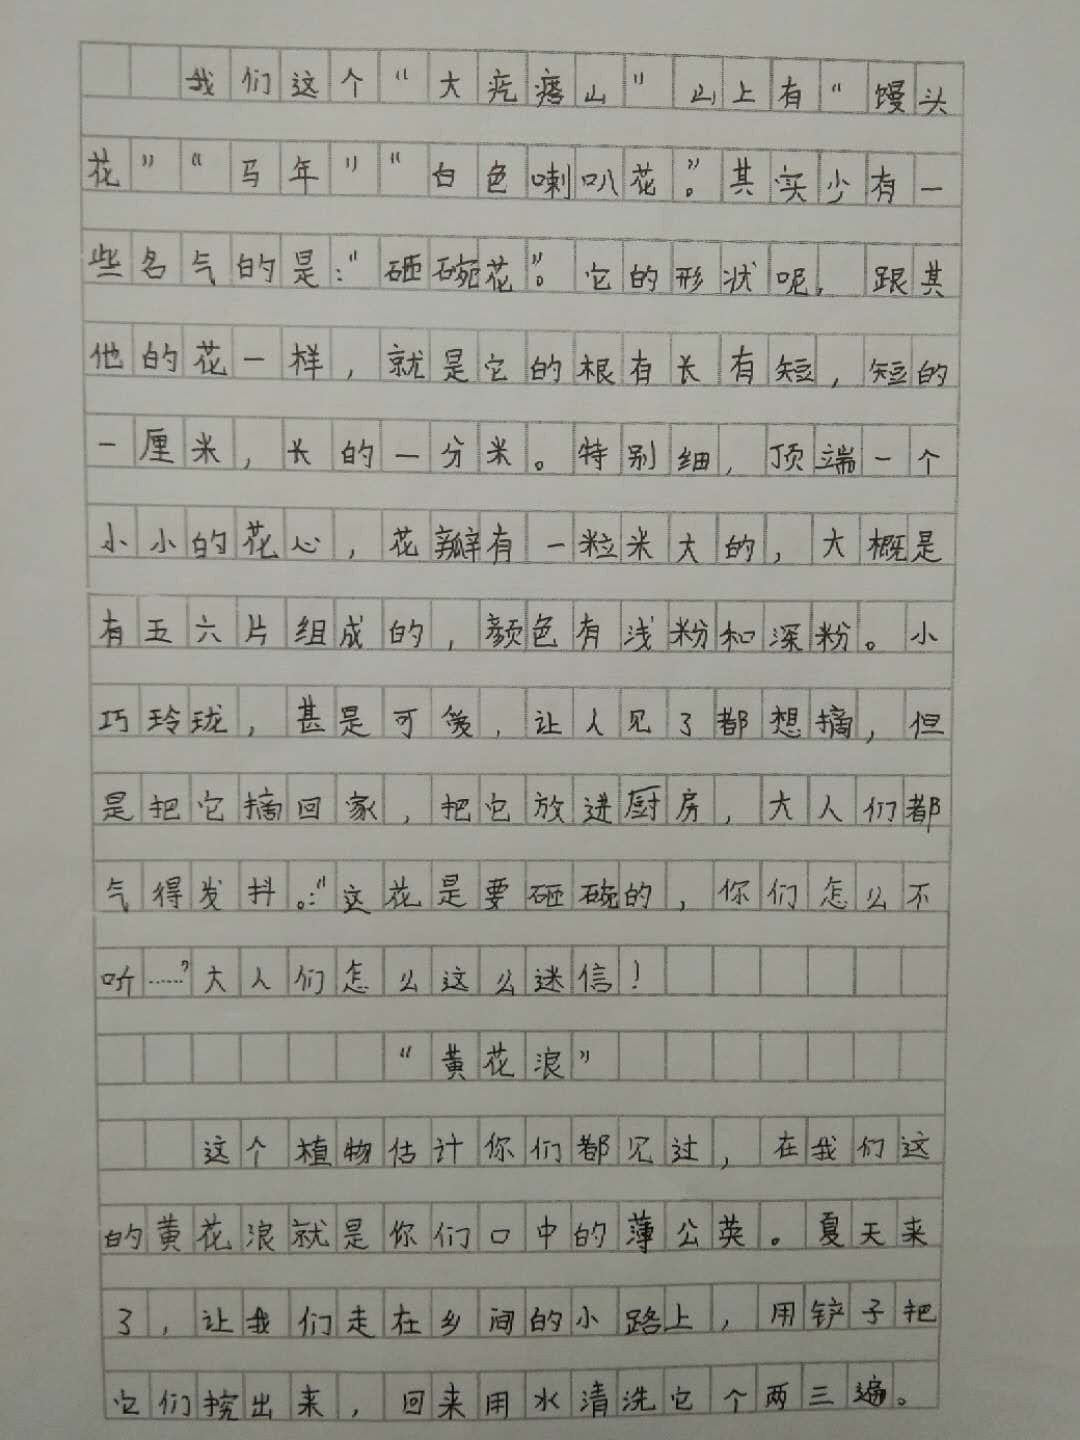 我们这个“大疙瘩山”山上有“馒头
花”“马年”“白色喇叭花”。其实少有一
些名气的是：“砸碗花”。它的形状呢，跟其
他的花一样，就是它的根有长有短，短的
一厘米，长的一分米。特别细，顶端一个
小小的花心，花瓣有一粒米大的，大概是
有五六片组成的，颜色有浅粉和深粉。小
巧玲珑，甚是可爱，让人见了都想摘，但
是把它摘回家，把它放进厨房，大人们都
气得发抖。：“这花是要砸碗的，你们怎么不
听……”大人们怎么这么迷信！
“黄花浪”
这个植物估计你们都见过，在我们这
的黄花浪就是你们口中的薄公英。夏天来
了，让我们走在乡间的小路上，用铲子把
它们挖出来，回来用水清洗它个两三遍。